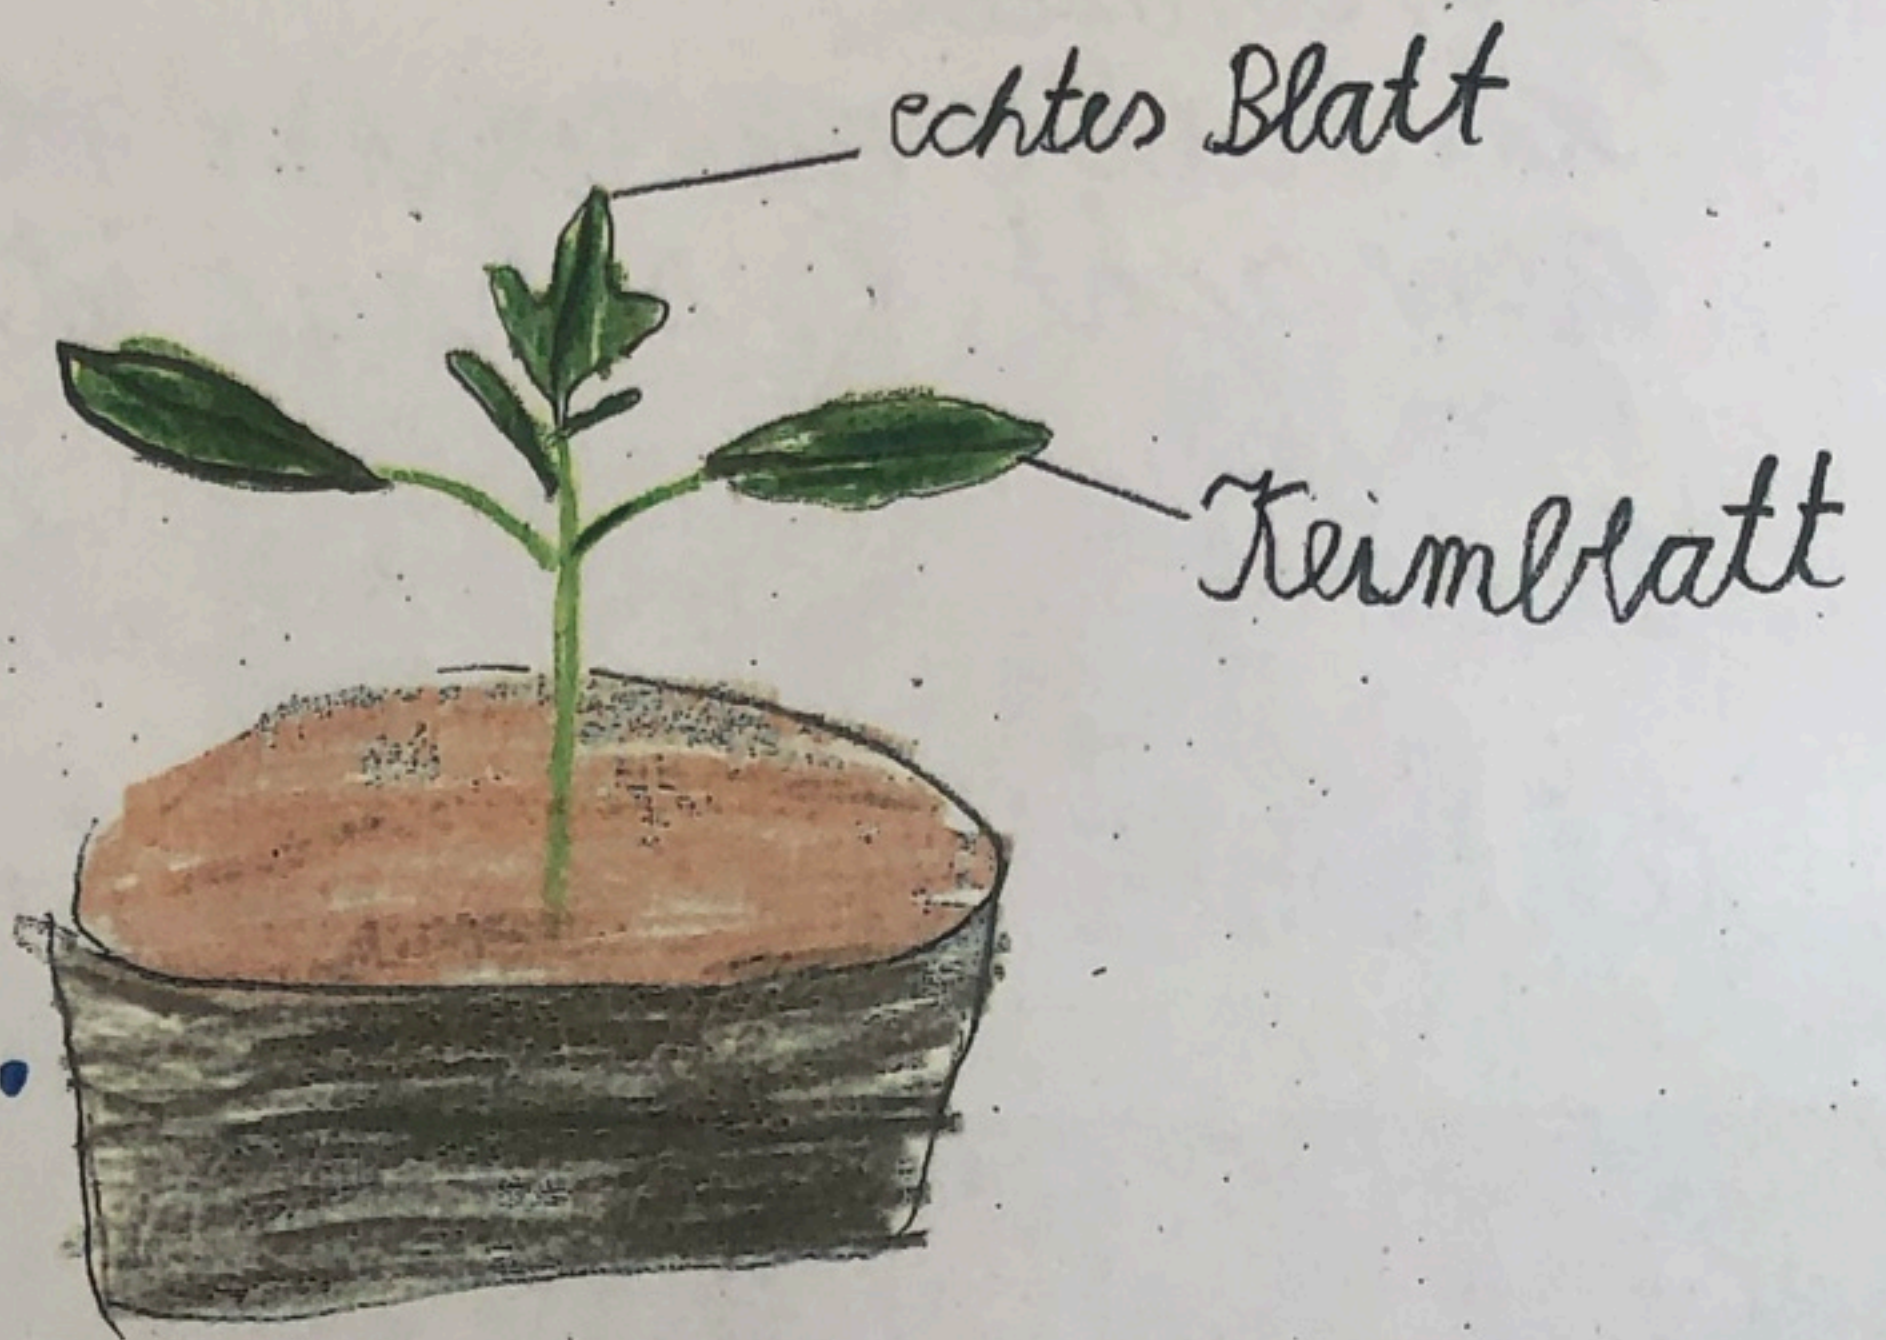 echtes Blatt
Keimblatt